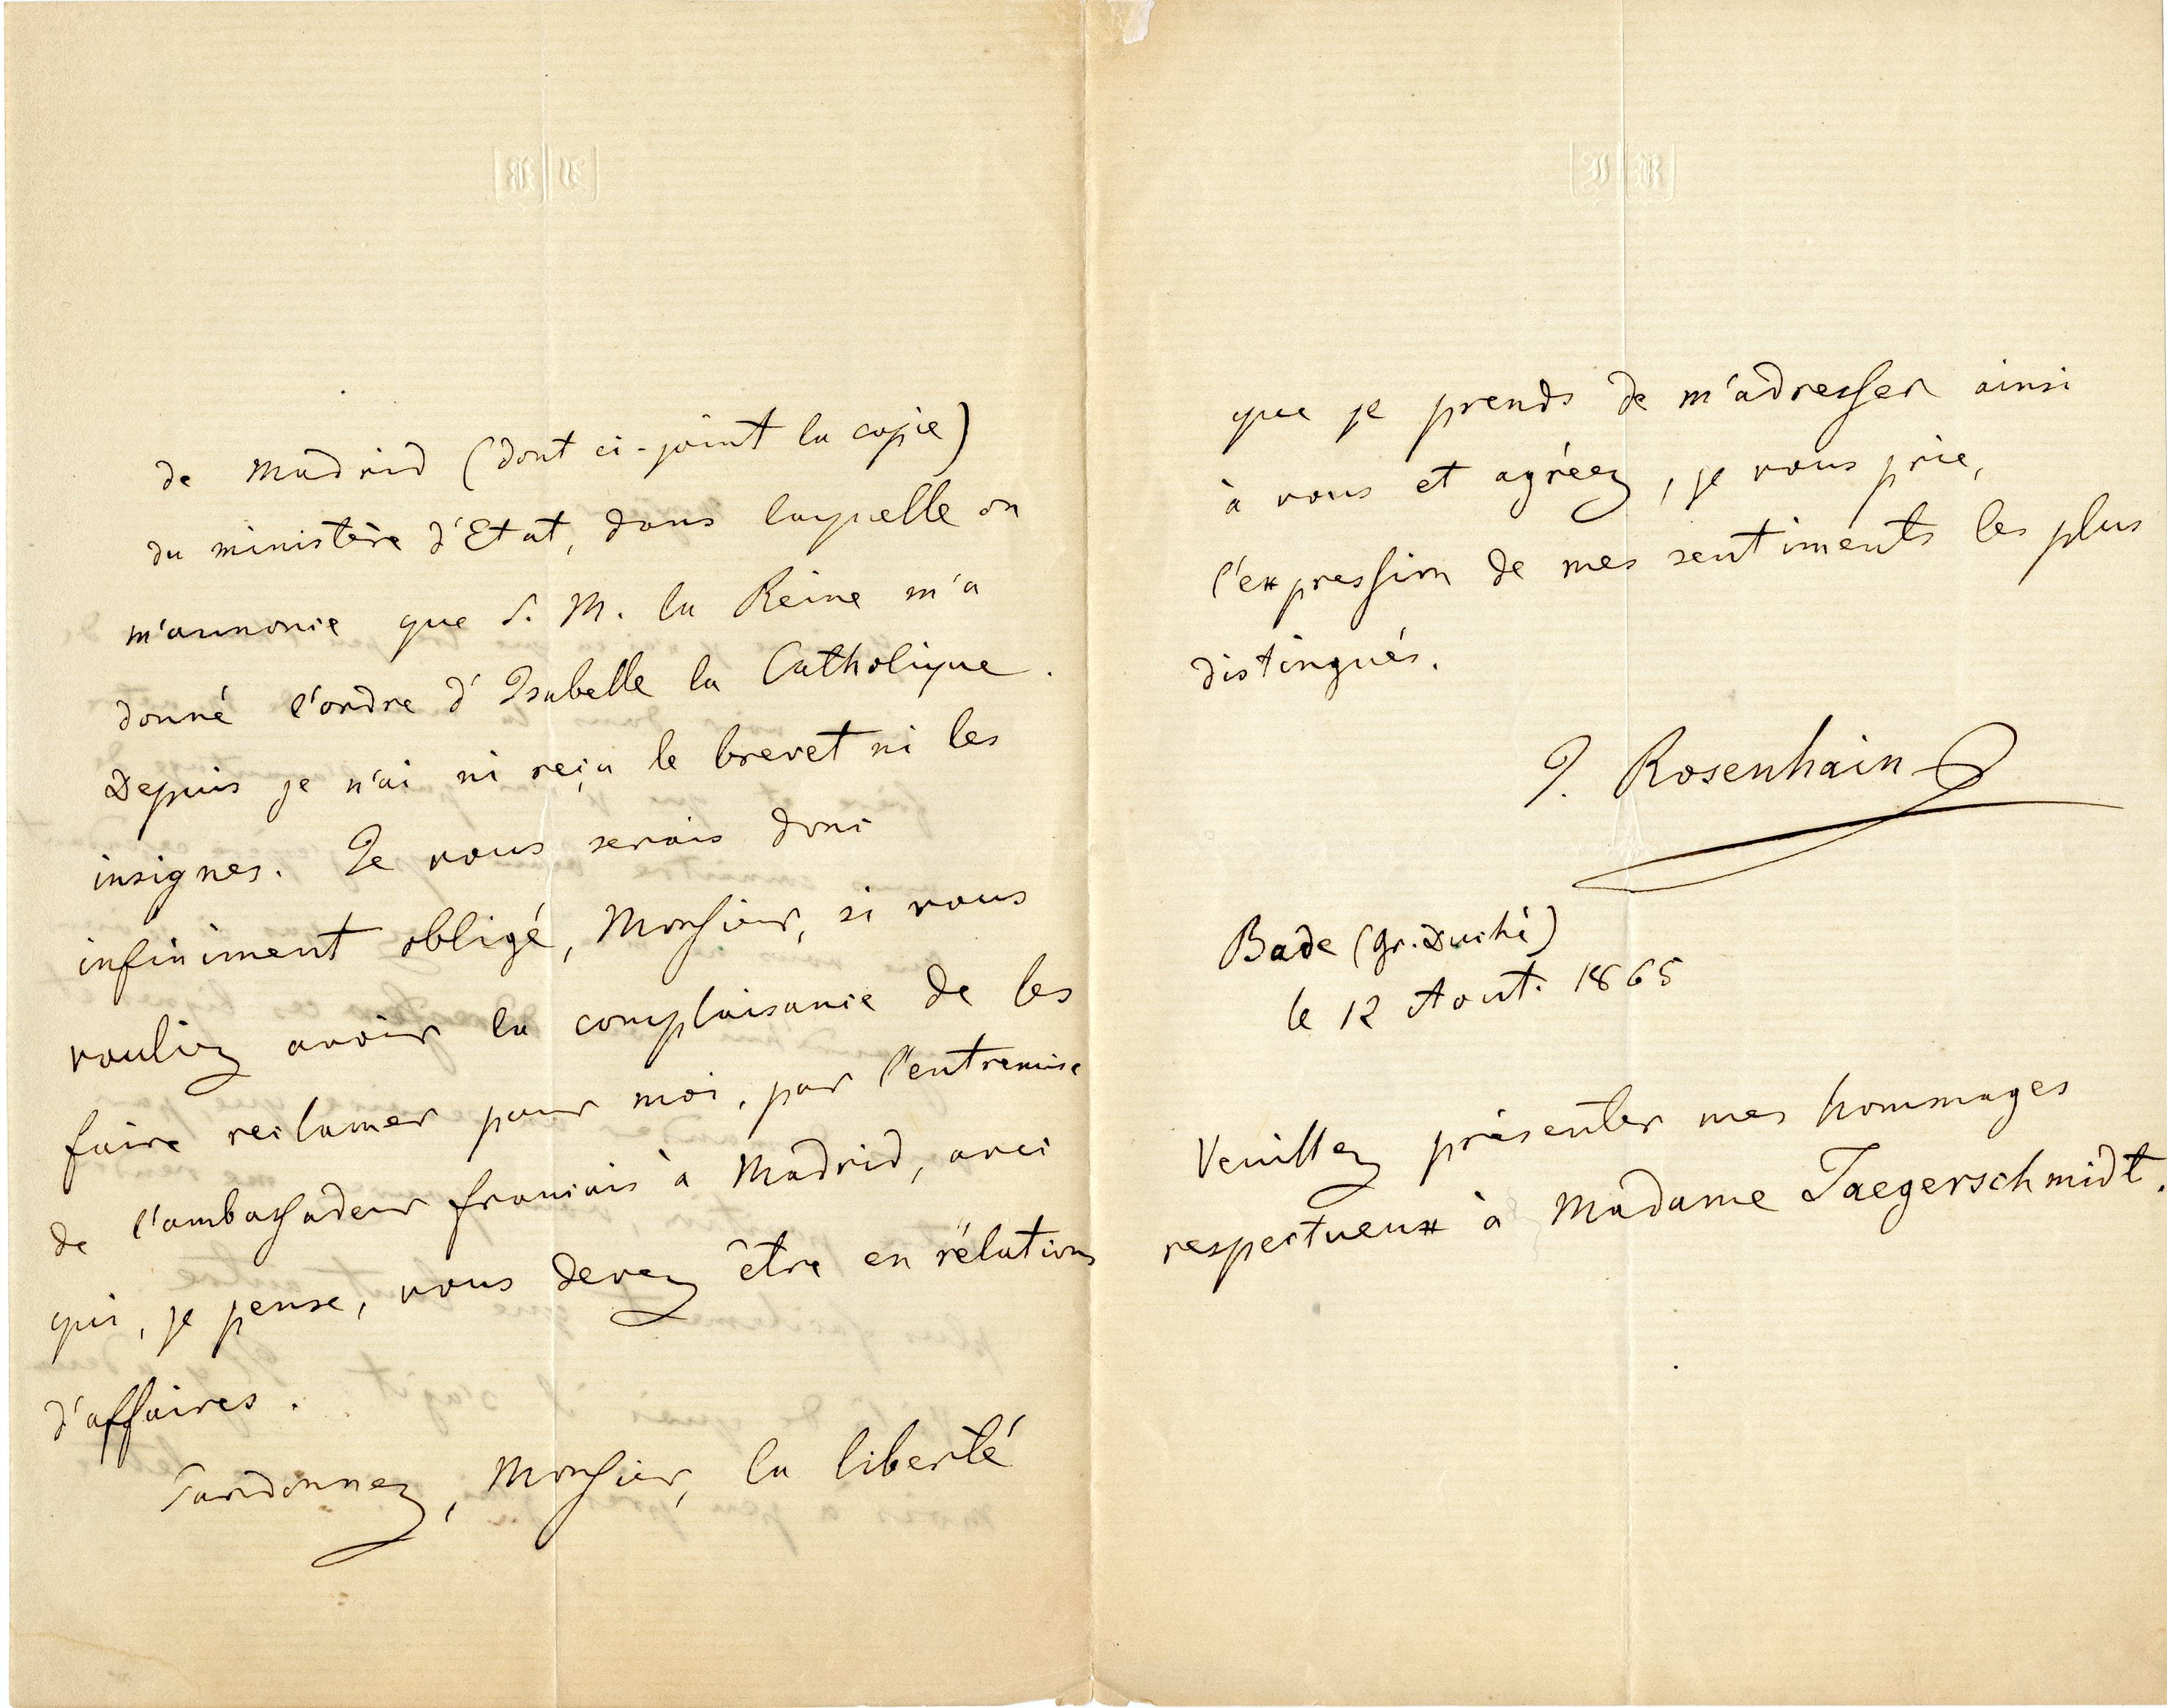 de Madrid (dont ci-joint la copie)
du ministère d'Etat, dans laquelle on
m'annonce que S. M. la Reine m'a
donné l'ordre d'Isabelle la Catholique.
Depuis je n'ai ni reçu le brevet ni les
insignes. Je vous serais donc
infiniment obligé, Monsieur, si vous
vouliez avoir la complaisance de les
faire reclamer pour moi, par l'entremise
de l'ambassadeur français à Madrid, avec
qui, je pense, vous devez être en rélations
d'affaires.
Pardonnez, Monsieur, la liberté
que je prends de m'adresser ainsi
à vous et agréez, je vous prie,
l'expression de mes sentiments les plus
distingués.
J. Rosenhain
Bade (gr. Duché)
le 12 Aout. 1865
Veuillez présenter mes hommages
respectueux à Madame Jaegerschmidt.